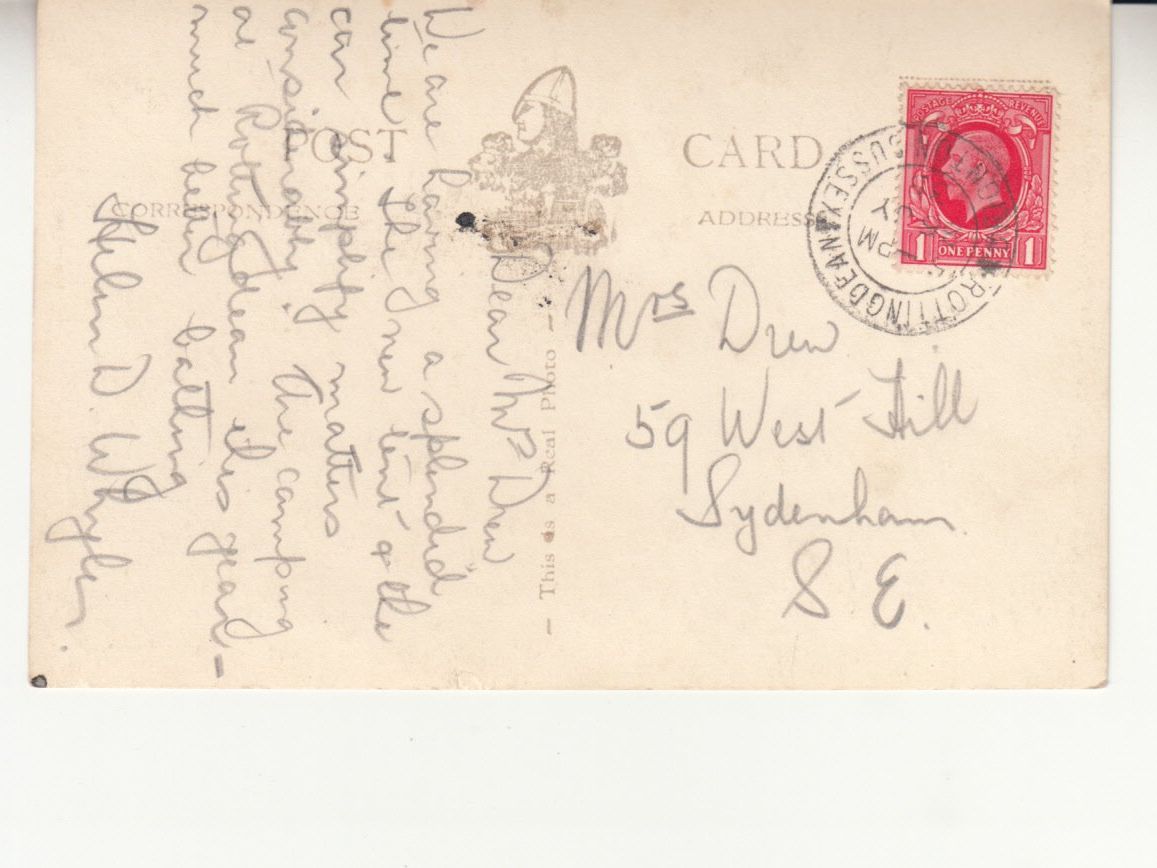 POST CARD
CORRESPONDENCE
ADDRESS
Dear Mrs Drew
We are having a splendid
time. The new tent & the
car simplify matters
considerably. The camping
at Rottingdean this year -
much better bathing
Helen D.
- This is a Real Photo -
Mrs Drew
59 West Hill
Sydenham
S E.
POSTAGE REVENUE
1 ONE PENNY 1
ROTTINGDEAN
SUSSEX
PM